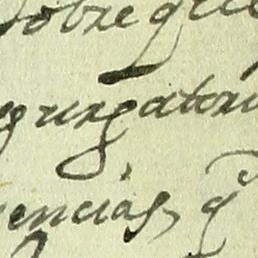 sobre que
purgatori
encias, q